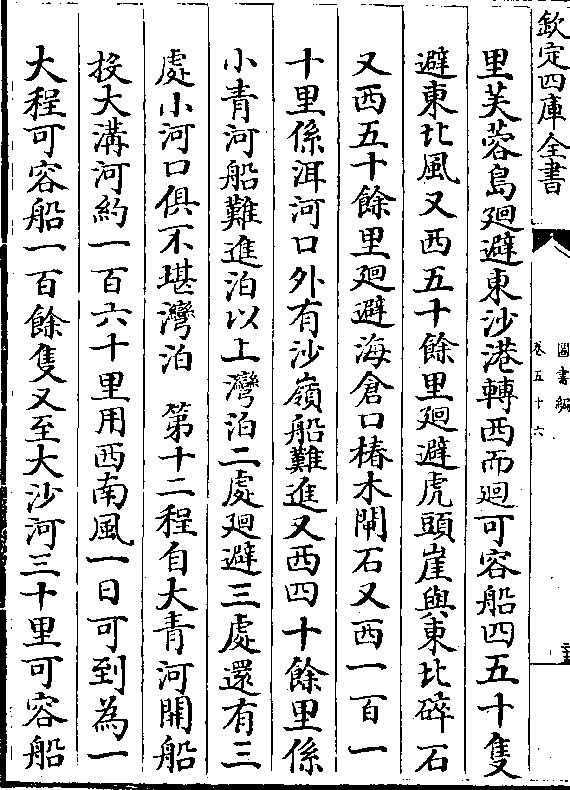 欽定四庫全書
圖書編
卷五十六
里芙蓉島廻避東沙港轉西而廻可容船四五十隻
避東北風又西五十餘里廻避虎頭崖與東北碎石
又西五十餘里廻避海倉口樁木閘石又西一百一
十里係洱河口外有沙嶺船難進又西四十餘里係
小青河船難進泊以上灣泊二處廻避三處還有三
處小河口俱不堪灣泊　第十二程自大青河開船
投大溝河約一百六十里用西南風一日可到為一
大程可容船一百餘隻又至大沙河三十里可容船